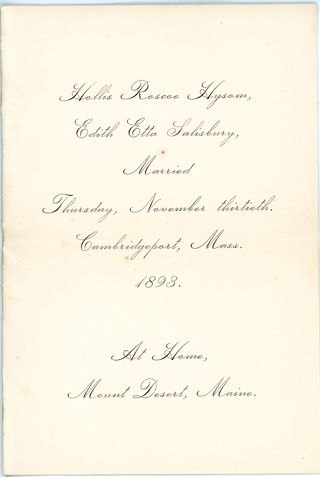 Hollis Roscoe Hysom,
Edith Etta Salisbury,
Married
Thursday, November thirtieth.
Cambridgeport, Mass.
1893.
At Home,
Mount Desert, Maine.